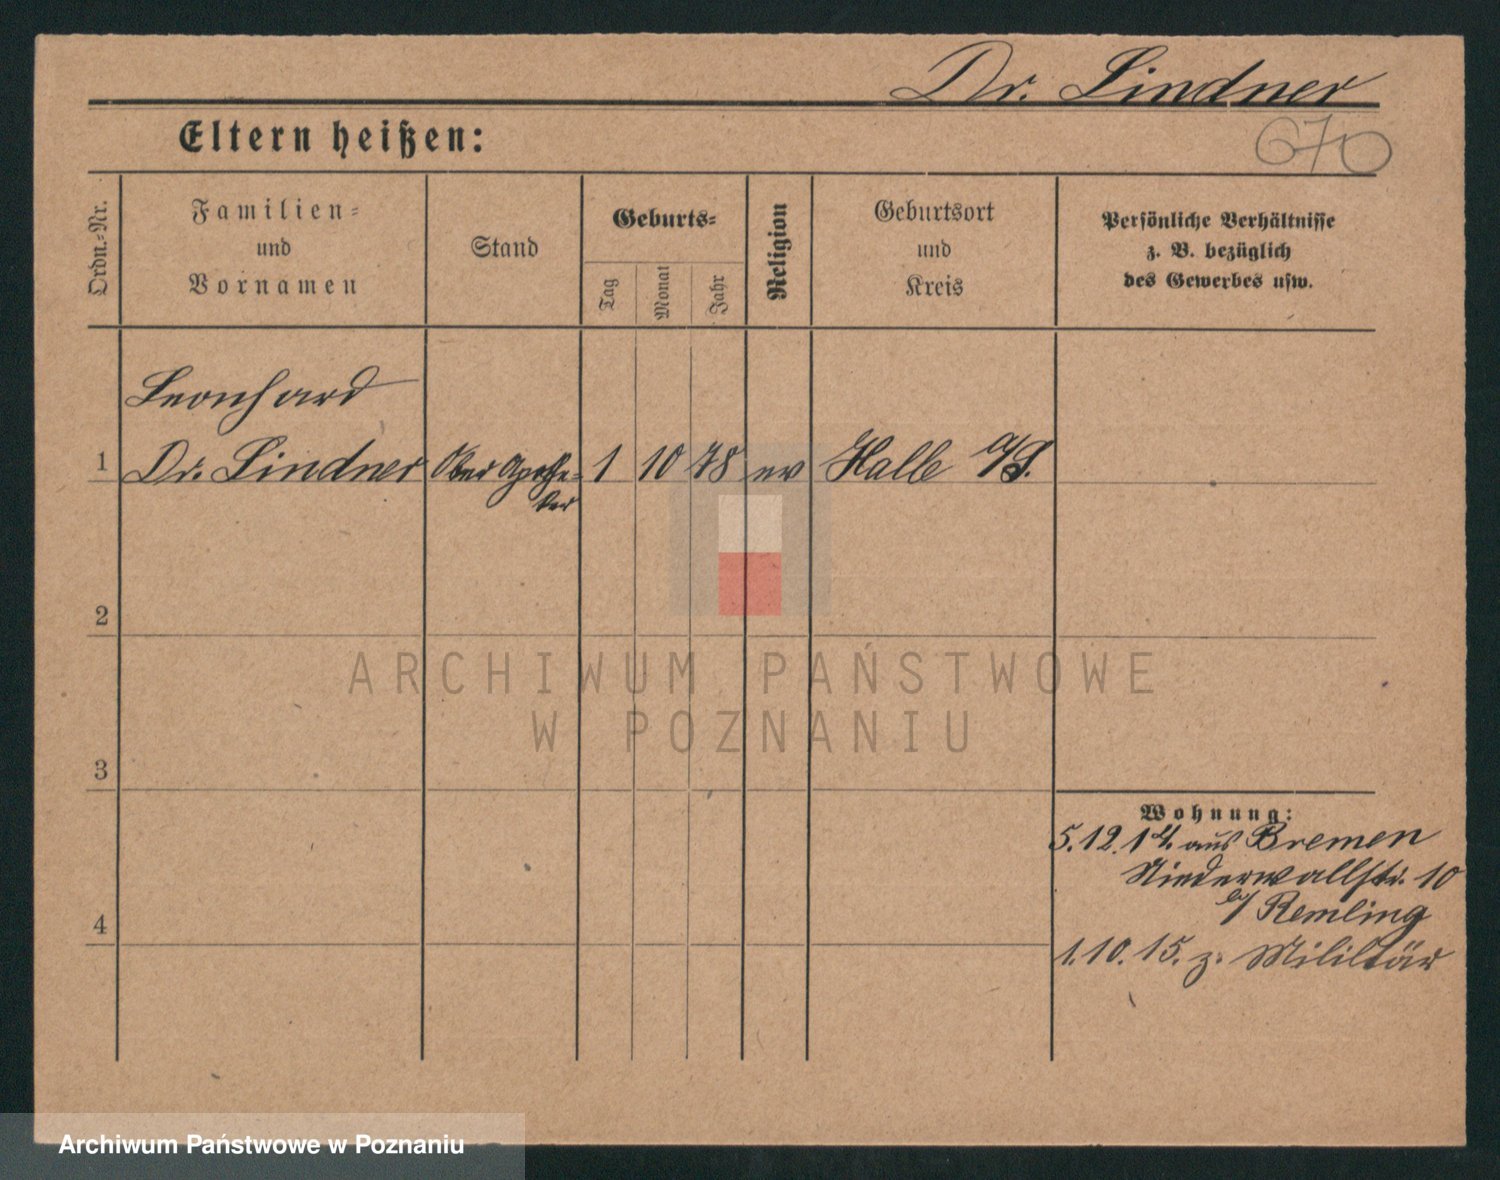 Dr. Lindner
670
Eltern heißen:
Ordn.-Nr.
Familien-
und
Vornamen
Stand
Geburts-
Tag
Monat
Jahr
Religion
Geburtsort
und
Kreis
Persönliche Verhältnisse
z. B. bezüglich
des Gewerbes usw.
Leonhard
1 Dr. Lindner Ober Apothe- 1 10 78 ev Halle a/S.
ker
2
ARCHIWUM PAŃSTWOWE
W POZNANIU
3
Wohnung:
5.12.14. aus Bremen
Niederwallstr. 10
b/ Remling
4
1.10.15. z. Militär
Archiwum Państwowe w Poznaniu